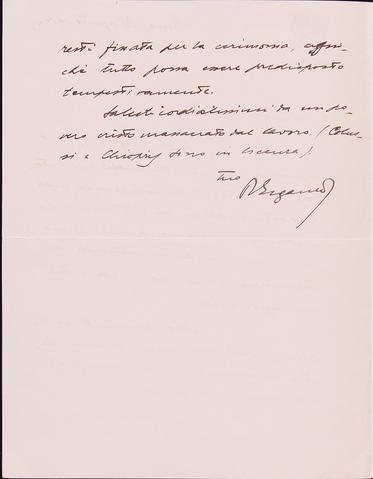 resti fissata per la cerimonia, affin-
chè tutto possa essere predisposto
tempestivamente.
Saluti cordialissimi da un po-
vero cristo massacrato dal lavoro. (Colus-
si e Chiopris sono in licenza).
tuo